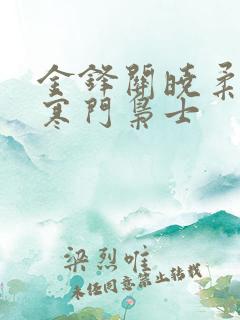 金鋒關曉柔
寒門梟士
梁烈唯
未经同意禁止转载